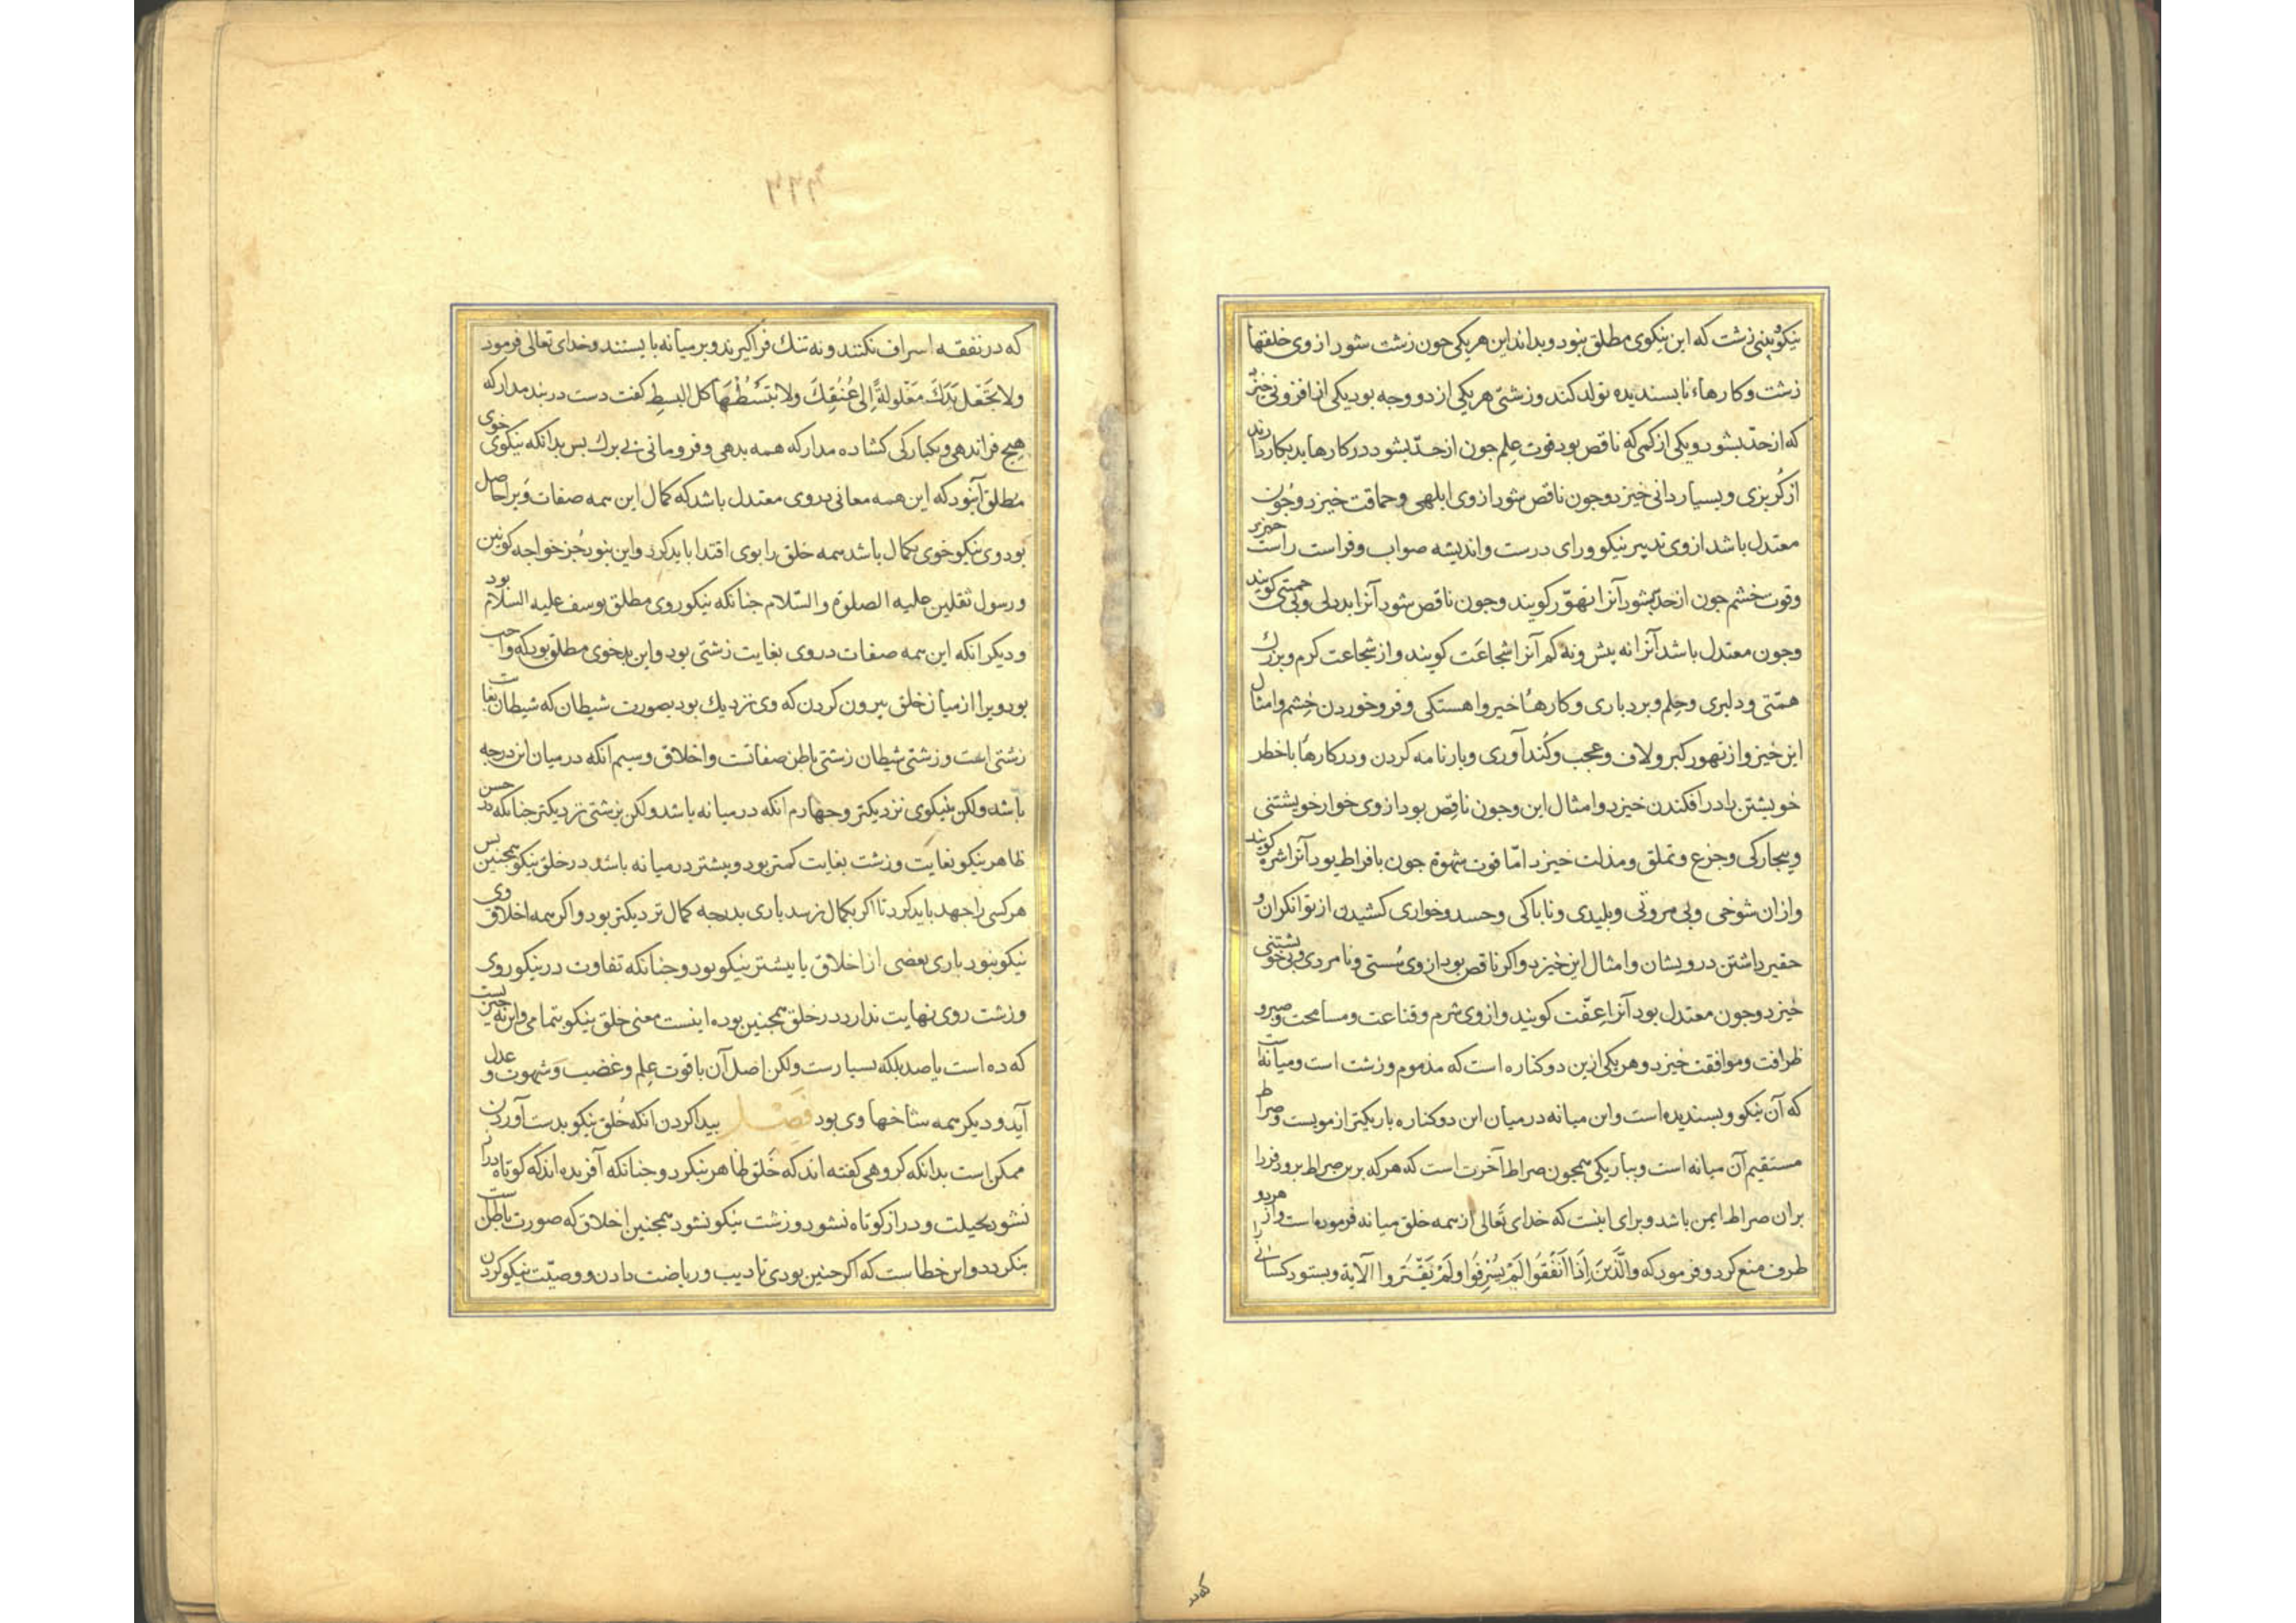 نیکو و بینی زشت که این نیکوی مطلق نبود و بدانه این هر یکی جون زشت شود از وی خلقها
زشت و کارهاء نابسندیده تولد کند و زشتی هر یکی از دو وجه بود یکی از افزونی خیزد
که از حدّ بشود و یکی از کمی که ناقص بود قوت علم جون از حدّ بشود در کارها بد بکار دارند
از کُربزی و بسیار دانی خیزد و جون ناقص شود از وی ابلهی و حماقت خیزد و جون
معتدل باشد از وی تدبیر نیکو و رای درست و اندیشه صواب و فراست راست خیزد
و قوت خشم جون از حدّ بشود آنرا تهوّر کویند و جون ناقص شود آنرا بددلی و بی حمیتی کویند
وجون معتدل باشد آنرا نه بیش و نه کم آنرا شجاعَت کویند و از شجاعت کرم و بزرك
همّتی و دلیری و حِلم و بردباری و کارهاُ خیر و اهستکی و فرو خوردن خشم و امثال
این خیزد و از تهور کبر و لاف و عجب و کُندآوری و بارنامه کردن و در کارهاُ باخطر
خویشتن را در افکندن خیزد و امثال این وجون ناقِص بود از وی خوار خویشتنی
و بیجارکی و جزع و تملق و مذلت خیزد امّا قوت شهوة جون بافراط بود آنرا شره کویند
و ازان شوخی و بی مروتی و بلیدی و ناباکی و حسد و خواری کشیدن از توانکران و
حقیر داشتن درویشان و امثال این خیزد و اکر ناقص بود از وی سُستی و نامردی و بی خویشتنی
خیزد وجون معتدل بود آنرا عِفّت کویند و از وی شرم و قناعت و مسامحت و صبر و
ظرافت و موافقت خیزد و هر یکی ازین دو کناره است که مذموم و زشت است و میانه است
که آن نیکو و بسندیده است و این میانه در میان این دو کناره باریکتر از مویست و صراط
مستقیم آن میانه است و بباریکی همجون صراط آخرت است که هر که برین صراط برود فردا
بران صراط ایمن باشد و برای اینست که خدای تَعالی از همه خلق میانه فرموده است و از هر دو
طرف منع کرد و فرمود که والَّذینَ اِذَا اَنفَقُوا لَمْ یُسْرِفُوا وَلَمْ یَقْتُرُوا الآیة و بستود کسانی را
که در نفقه اسراف نکنند و نه تنك فراکیرند و بر میانه بایستند و خدای تعالی فرمود
ولا تَجْعَل یَدَكَ مَغْلولةً اِلی عُنُقِكَ ولا تَبْسُطْهَا کل البسطِ کفت دست در بند مدار که
هیج فراندهی و یکبارکی کشاده مدار که همه بدهی و فرومانی بی برك بس بدانکه نیکوی خوی
مُطلق آنبود که این همه معانی در وی معتدل باشد که کمال این همه صفات ویرا حاصل
بود وی نیکو خوی بکمال باشد همه خلق را بوی اقتدا باید کرد و این نبود جُز خواجه کونین
و رسول ثقلین علیه الصلوة والسّلام جنانکه نیکو روی مطلق یوسف علیه السلام بود
و دیکر انکه این همه صفات در وی بغایت زشتی بود و این بدخوی مطلق بود که واجب
بود ویرا از میان خلق بیرون کردن که وی نزدیك بود بصورت شیطان که شیطان بغایت
زشتی است و زشتی شیطان زشتی باطن صفاتست و اخلاق و سیم آنکه در میان این درجه
باشد ولکن بنیکوی نزدیکتر و جهارم انکه در میانه باشد ولکن بزشتی نزدیکتر جنانکه در حسن
ظاهر نیکو بغایَت و زشت بغایت کمتر بود و بیشتر در میانه باشد در خلق نیکو همجنین بس
هر کسی را جهد باید کرد تا اکر بکمال نرسد باری بدرجه کمال نزدیکتر بود و اکر همه اخلاق وی
نیکو نبود باری بعضی از اخلاق یا بیشتر نیکو بود و جنانکه تفاوت در نیکو روی
و زشت روی نهایت ندارد در خلق همجنین بوده اینست معنی خلق نیکو بتمامی و این نه جیزیست
که ده است یا صد بلکه بسیارست ولکن اصل آن با قوت عِلم و غضب و شهوت و عدل
آید و دیکر همه شاخها وی بود فَصْل بیدا کردن انکه خُلق نیکو بدست آوردن
ممکن است بدانکه کروهی کفته اند که خَلق ظاهر بنکردد جنانکه آفریده اند که کوتاه دراز
نشود بحیلت و دراز کوتاه نشود و زشت نیکو نشود همجنین اخلاق که صورت باطن است
بنکردد و این خطاست که اکر جنین بودی تادیب و ریاضت دادن و وصیّت نیکو کردن
که در